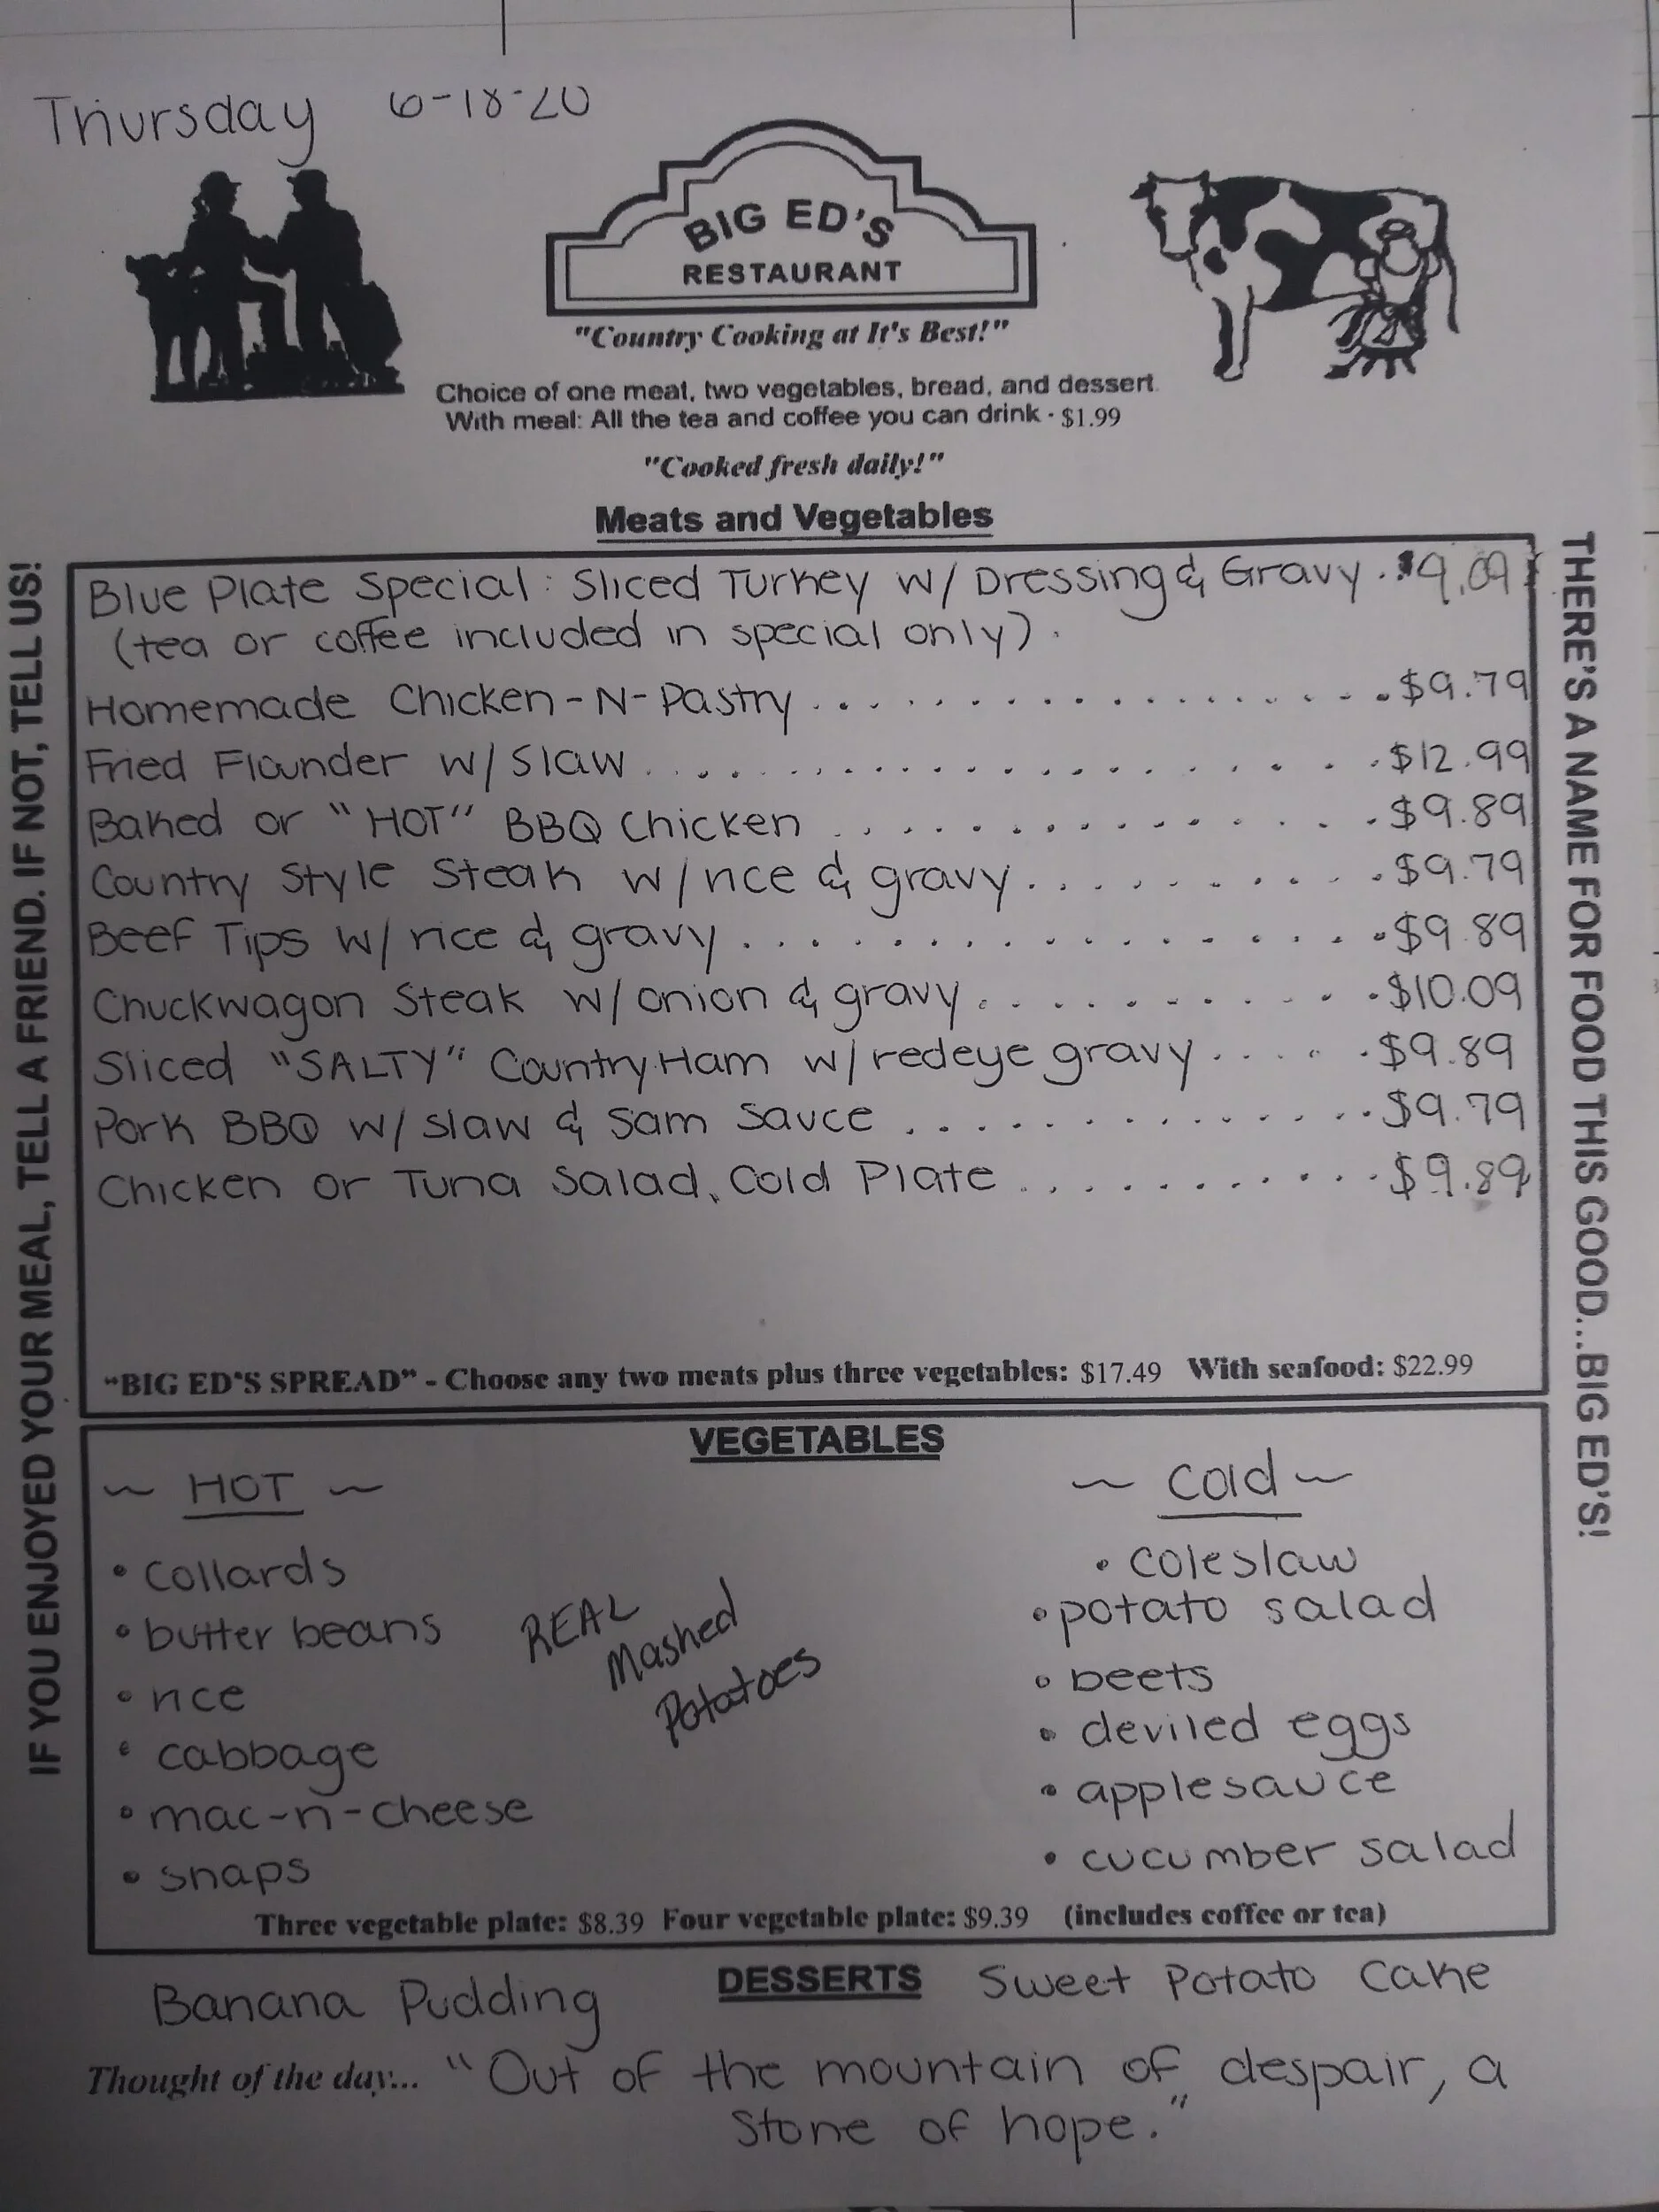 Thursday 6-18-20
BIG ED'S
RESTAURANT
"Country Cooking at It's Best!"
Choice of one meat, two vegetables, bread, and dessert.
With meal: All the tea and coffee you can drink - $1.99
"Cooked fresh daily!"
Meats and Vegetables
IF YOU ENJOYED YOUR MEAL, TELL A FRIEND. IF NOT, TELL US!
THERE'S A NAME FOR FOOD THIS GOOD...BIG ED'S!
Blue Plate Special: Sliced Turkey w/ Dressing & Gravy. $9.09
(tea or coffee included in special only).
Homemade Chicken-N-Pastry . . . . . . . . . . . . . . . . . . $9.79
Fried Flounder w/ Slaw . . . . . . . . . . . . . . . . . . . . $12.99
Baked or "HOT" BBQ Chicken . . . . . . . . . . . . . . . $9.89
Country Style Steak w/ rice & gravy . . . . . . . . . . $9.79
Beef Tips w/ rice & gravy . . . . . . . . . . . . . . . . . . $9.89
Chuckwagon Steak w/ onion & gravy . . . . . . . . . . . $10.09
Sliced "SALTY" Country Ham w/ redeye gravy . . . . . $9.89
Pork BBQ w/ slaw & Sam Sauce . . . . . . . . . . . . . . $9.79
Chicken or Tuna Salad, Cold Plate . . . . . . . . . . . . $9.89
"BIG ED'S SPREAD" - Choose any two meats plus three vegetables: $17.49 With seafood: $22.99
VEGETABLES
~ HOT ~
• collards
• butter beans
• rice
• cabbage
• mac-n-cheese
• snaps
REAL
Mashed
Potatoes
~ Cold ~
• coleslaw
• potato salad
• beets
• deviled eggs
• applesauce
• cucumber salad
Three vegetable plate: $8.39 Four vegetable plate: $9.39 (includes coffee or tea)
Banana Pudding DESSERTS Sweet Potato Cake
Thought of the day... "Out of the mountain of despair, a
stone of hope."